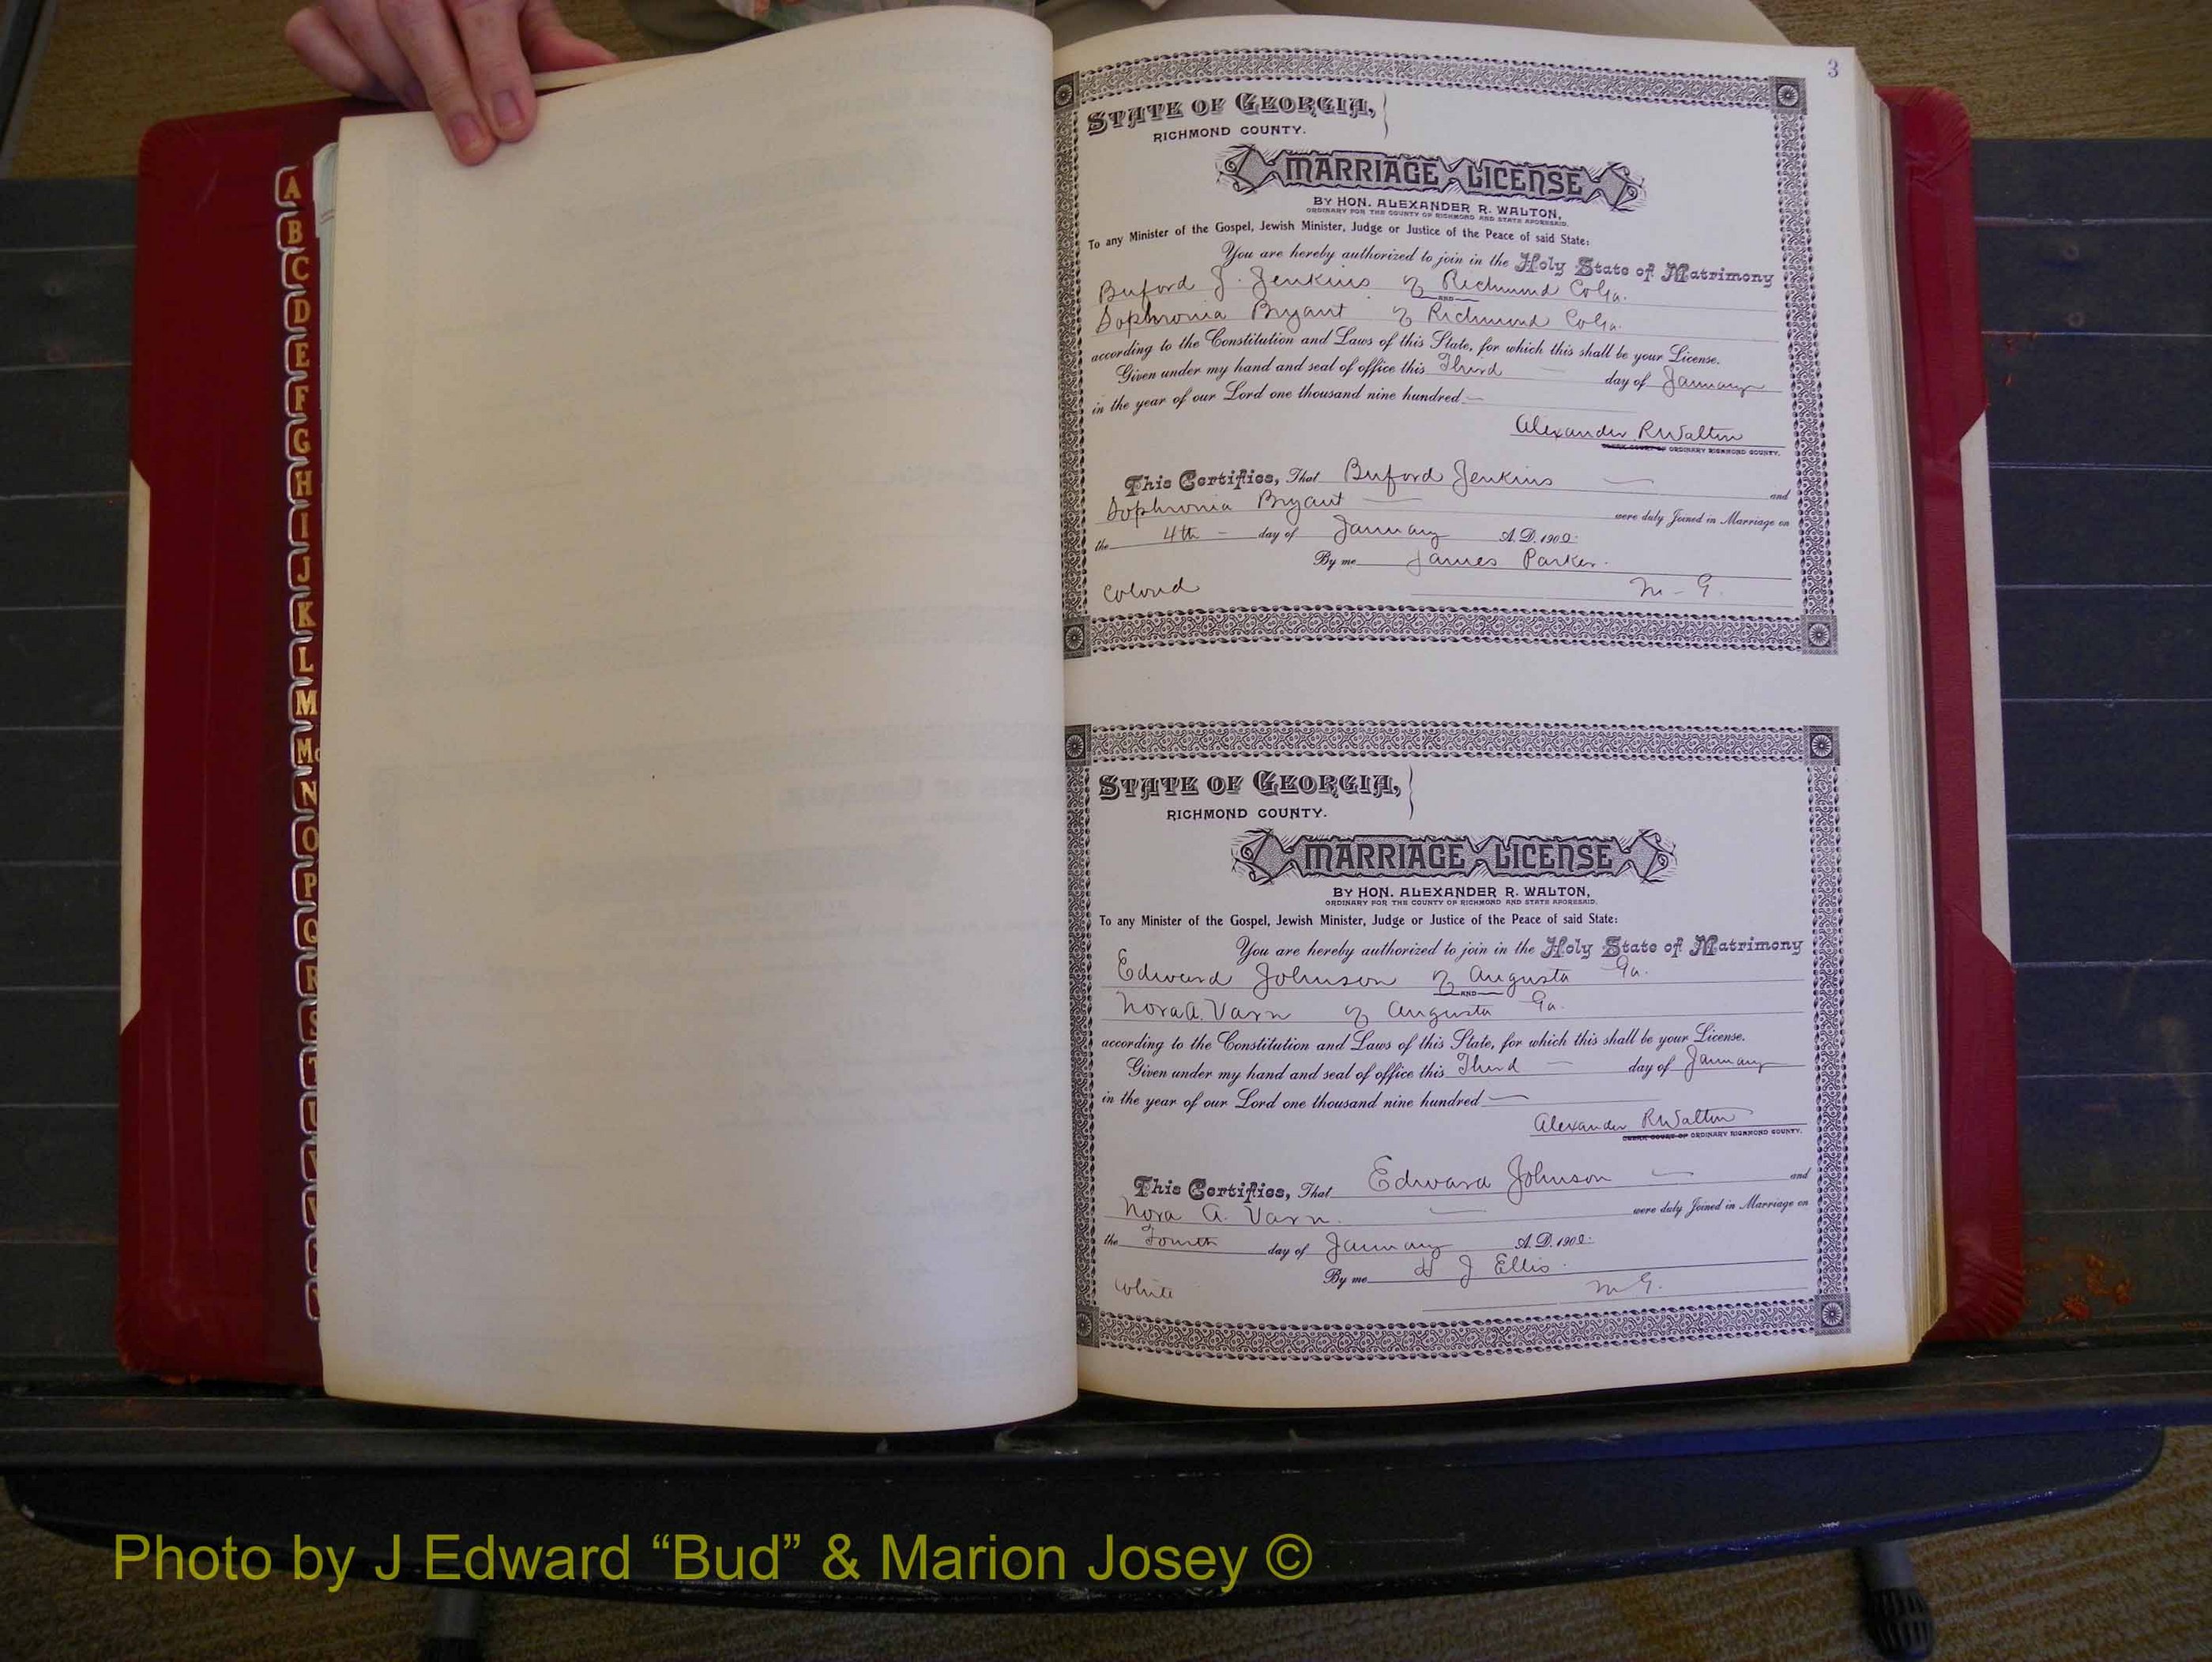 3
STATE OF GEORGIA,
RICHMOND COUNTY.
MARRIAGE LICENSE
BY HON. ALEXANDER R. WALTON,
ORDINARY FOR THE COUNTY OF RICHMOND AND STATE AFORESAID.
To any Minister of the Gospel, Jewish Minister, Judge or Justice of the Peace of said State:
You are hereby authorized to join in the Holy State of Matrimony
Buford J. Jenkins of Richmond Co Ga.
AND
Sophronia Bryant of Richmond Co Ga.
according to the Constitution and Laws of this State, for which this shall be your License.
Given under my hand and seal of office this Third day of January
in the year of our Lord one thousand nine hundred
Alexander R Walton
CLERK COURT OF ORDINARY RICHMOND COUNTY.
This Certifies, That Buford Jenkins and
Sophronia Bryant were duly Joined in Marriage on
the 4th day of January A. D. 1900.
By me James Parker.
Colored M-G.
STATE OF GEORGIA,
RICHMOND COUNTY.
MARRIAGE LICENSE
BY HON. ALEXANDER R. WALTON,
ORDINARY FOR THE COUNTY OF RICHMOND AND STATE AFORESAID.
To any Minister of the Gospel, Jewish Minister, Judge or Justice of the Peace of said State:
You are hereby authorized to join in the Holy State of Matrimony
Edward Johnson of Augusta Ga.
AND
Nora A. Varn of Augusta Ga.
according to the Constitution and Laws of this State, for which this shall be your License.
Given under my hand and seal of office this Third day of January
in the year of our Lord one thousand nine hundred
Alexander R Walton
CLERK COURT OF ORDINARY RICHMOND COUNTY.
This Certifies, That Edward Johnson and
Nora A. Varn. were duly Joined in Marriage on
the Fourth day of January A. D. 1900.
By me J Ellis.
White M G.
A
B
C
D
E
F
G
H
I
J
K
L
M
Mc
N
O
P
Q
R
S
T
U
V
Photo by J Edward “Bud” & Marion Josey ©